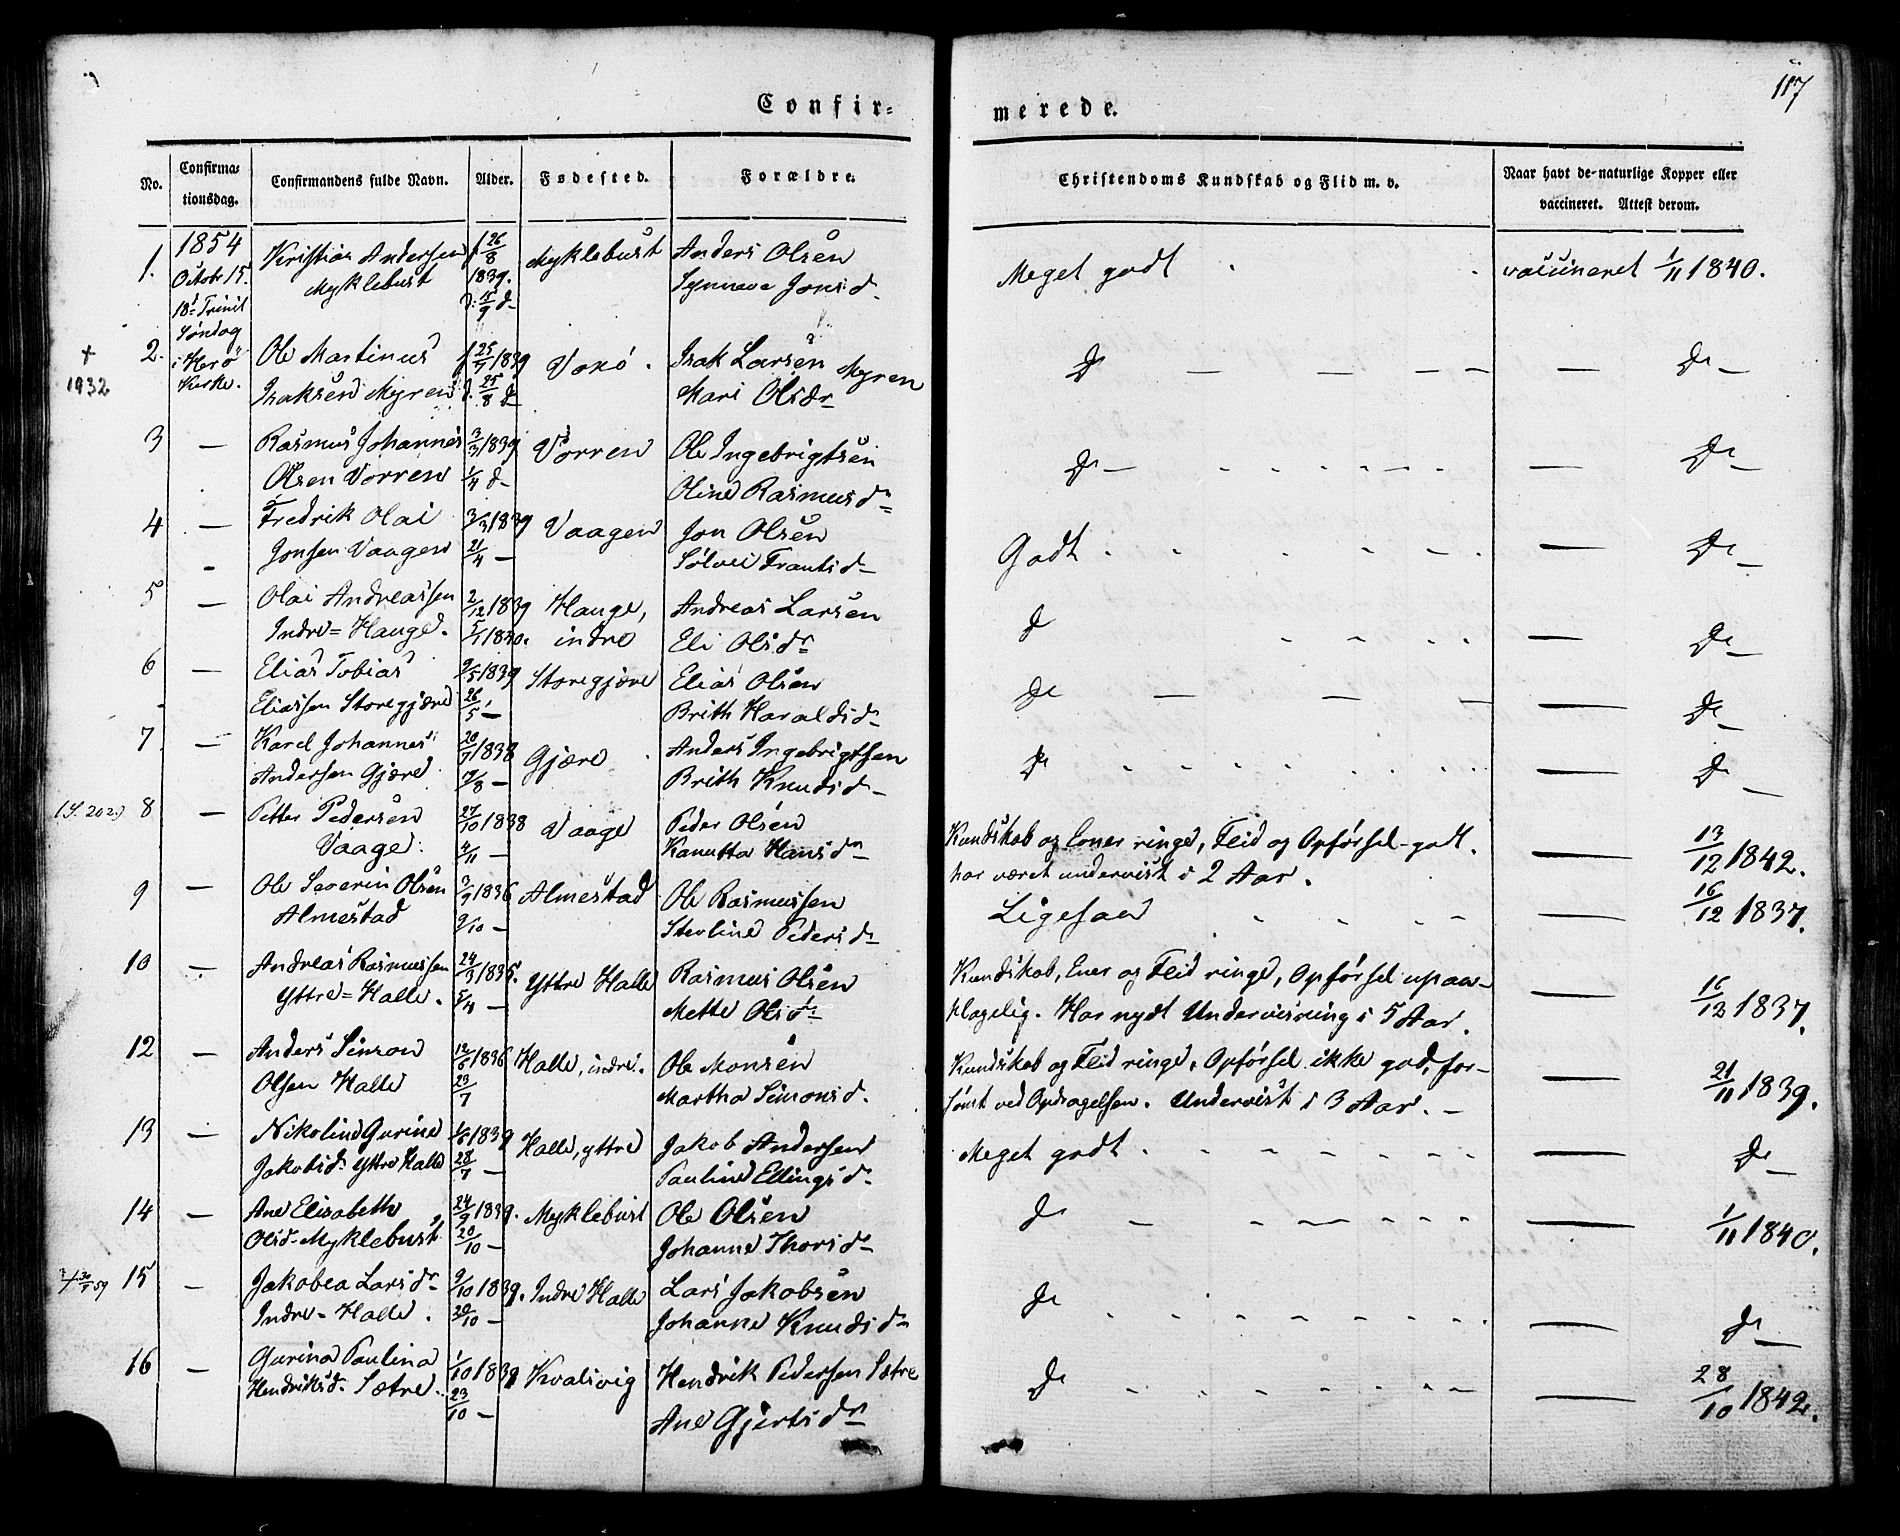 117
Confir-
merede.
No.
Confirma-
tionsdag.
Confirmandens fulde Navn.
Alder.
Fødested.
Forældre.
Christendoms Kundskab og Flid m. v.
Naar havt de naturlige Kopper eller
vaccineret. Attest derom.
1. 1854 Kristian Andersen f 26/8 Myklebust Anders Olsen Meget godt vaccineret 1/11 1840.
Octobr 15. Myklebust 1839. Synneve Jonsd.
18de Trinit d: 15/9 do
Søndag
+ 2. i Herö Ole Martinus f 25/7 1839 Voxö. Isak Larsen Myren Do Do
1932 Kirke. Isaksen Myren d. 25/8 do Mari Olsdr
3 — Rasmus Johannes 3/3 1839 Vorren Ole Ingebrigtsen Do — — Do
Olsen Vorren 1/4 do Oline Rasmusdr
4 — Fredrik Olai 3/3 1839 Vaagen Jon Olsen Godt — Do
Jonsen Vaagen 21/4 — Sølvei Frantsd
5 — Olai Andreassen 2/12 1839 Hauge, Andreas Larsen Do — Do
Indre=Hauge. 5/1 1830. indre Eli Olsdr
6 — Elias Tobias 9/5 1839 Storegjære Elias Olsen Do — Do
Eliassen Storegjære 26/5 — Brith Haraldsd
7 — Karel Johannes 20/7 1838 Gjære Anders Ingebrigtsen Do — Do
Andersen Gjære 7/8 — Brith Knudsd
(S. 202.) 8 — Petter Pedersen 27/10 1838 Vaage Peder Olsen Kundskab og Evner ringe, Flid og Opførsel godt. — 13/12 1842.
Vaage. 4/11 — Kanutta Hansdr har været undervist i 2 Aar.
9 — Ole Severin Olsen 3/9 1836 Almestad Ole Rasmussen Ligesaa — 16/12 1837.
Almestad 9/10 — Stevline Pedersd
10 — Andreas Rasmussen 24/3 1835. Yttre Halle Rasmus Olsen Kundskab, Evner og Flid ringe, Opførsel upaa-
Yttre=Halle. 5/4 — Mette Olsdr klagelig. Har nydt Undervisning i 5 Aar. — 16/12 1837.
12 — Anders Simon 12/6 1836 Halle, indre. Ole Monsen Kundskab og Flid ringe, Opførsel ikke god, for-
Olsen Halle 23/7 Martha Simonsd. sømt ved Opdragelsen. Undervist i 3 Aar. — — 21/11 1839.
13 — Nikoline Gurine 1/6 1839 Halle, yttre Jakob Andersen Meget godt — Do
Jakobsd. Yttre Halle 28/7 — Pauline Ellingsd
14 — Ane Elisabeth 24/9 1839. Myklebust Ole Olsen Do — 1/11 1840.
Olsd. Myklebust 20/10 — Johanne Thorsd
15 — Jakobea Larsdr 9/10 1839. Indre Halle Lars Jakobsen Do — Do
Indre-Halle. 20/10 — Johanne Knudsd
16 — Gurina Paulina 1/10 1839 Kvalsvig Hendrik Pedersen Sætre Do — 28/10 1842.
Hendriksd. Sætre. 23/10 — Ane Gjertsdr